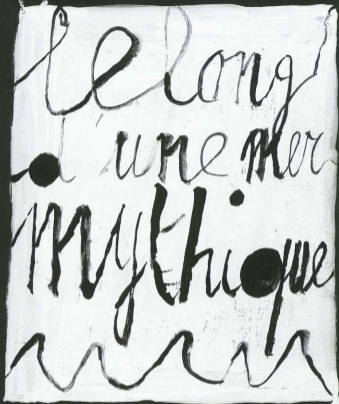 le long
d'une mer
mythique